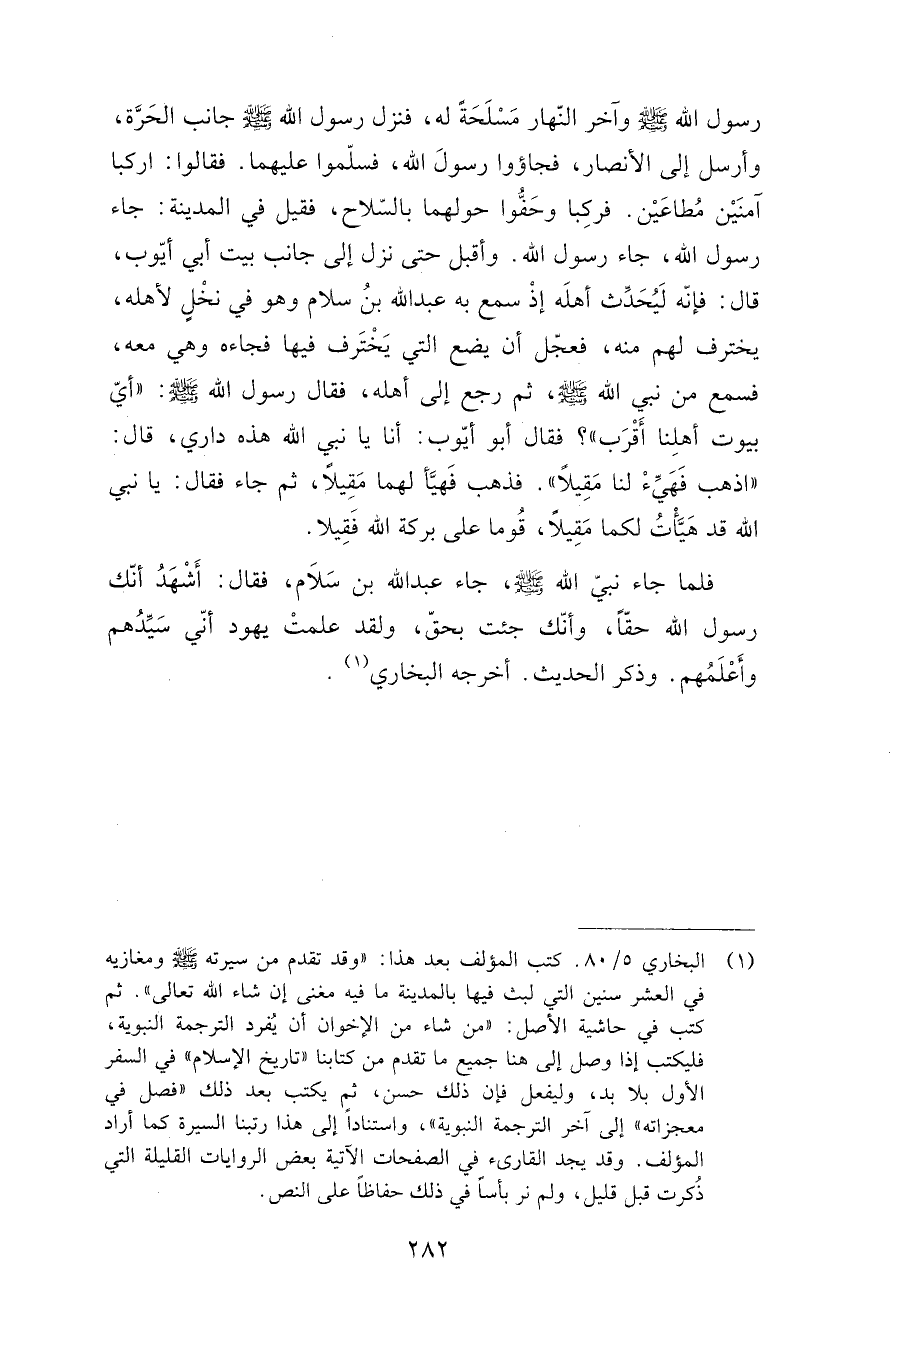 رسول الله ﷺ وآخر النّهار مَسْلَحَةً له، فنزل رسول الله ﷺ جانب الحَرَّة،
وأرسل إلى الأنصار، فجاؤوا رسولَ الله، فسلّموا عليهما. فقالوا: اركبا
آمنَيْن مُطاعَيْن. فركِبا وحَفُّوا حولهما بالسّلاح، فقيل في المدينة: جاء
رسول الله، جاء رسول الله. وأقبل حتى نزل إلى جانب بيت أبي أيّوب،
قال: فإنّه لَيُحَدِّث أهلَه إذْ سمع به عبدالله بنُ سلام وهو في نخْلٍ لأهله،
يخترف لهم منه، فعجّل أن يضع التي يَخْتَرف فيها فجاءه وهي معه،
فسمع من نبي الله ﷺ، ثم رجع إلى أهله، فقال رسول الله ﷺ: «أيّ
بيوت أهلنا أَقْرَب»؟ فقال أبو أيّوب: أنا يا نبي الله هذه داري، قال:
«اذهب فَهَيِّءْ لنا مَقِيلاً». فذهب فَهيَّأ لهما مَقِيلاً، ثم جاء فقال: يا نبي
الله قد هَيَّأْتُ لكما مَقِيلاً، قُوما على بركة الله فَقِيلا.
فلما جاء نبيّ الله ﷺ، جاء عبدالله بن سَلَام، فقال: أَشْهَدُ أنّك
رسول الله حقّاً، وأنّك جئت بحقّ، ولقد علمتْ يهود أنّي سَيِّدُهم
وأَعْلَمُهم. وذكر الحديث. أخرجه البخاري(١).
(١) البخاري ٥/ ٨٠. كتب المؤلف بعد هذا: «وقد تقدم من سيرته ﷺ ومغازيه
في العشر سنين التي لبث فيها بالمدينة ما فيه مغنى إن شاء الله تعالى». ثم
كتب في حاشية الأصل: «من شاء من الإخوان أن يُفرد الترجمة النبوية،
فليكتب إذا وصل إلى هنا جميع ما تقدم من كتابنا «تاريخ الإسلام» في السفر
الأول بلا بد، وليفعل فإن ذلك حسن، ثم يكتب بعد ذلك «فصل في
معجزاته» إلى آخر الترجمة النبوية»، واستناداً إلى هذا رتبنا السيرة كما أراد
المؤلف. وقد يجد القارىء في الصفحات الآتية بعض الروايات القليلة التي
ذُكرت قبل قليل، ولم نر بأساً في ذلك حفاظاً على النص.
٢٨٢